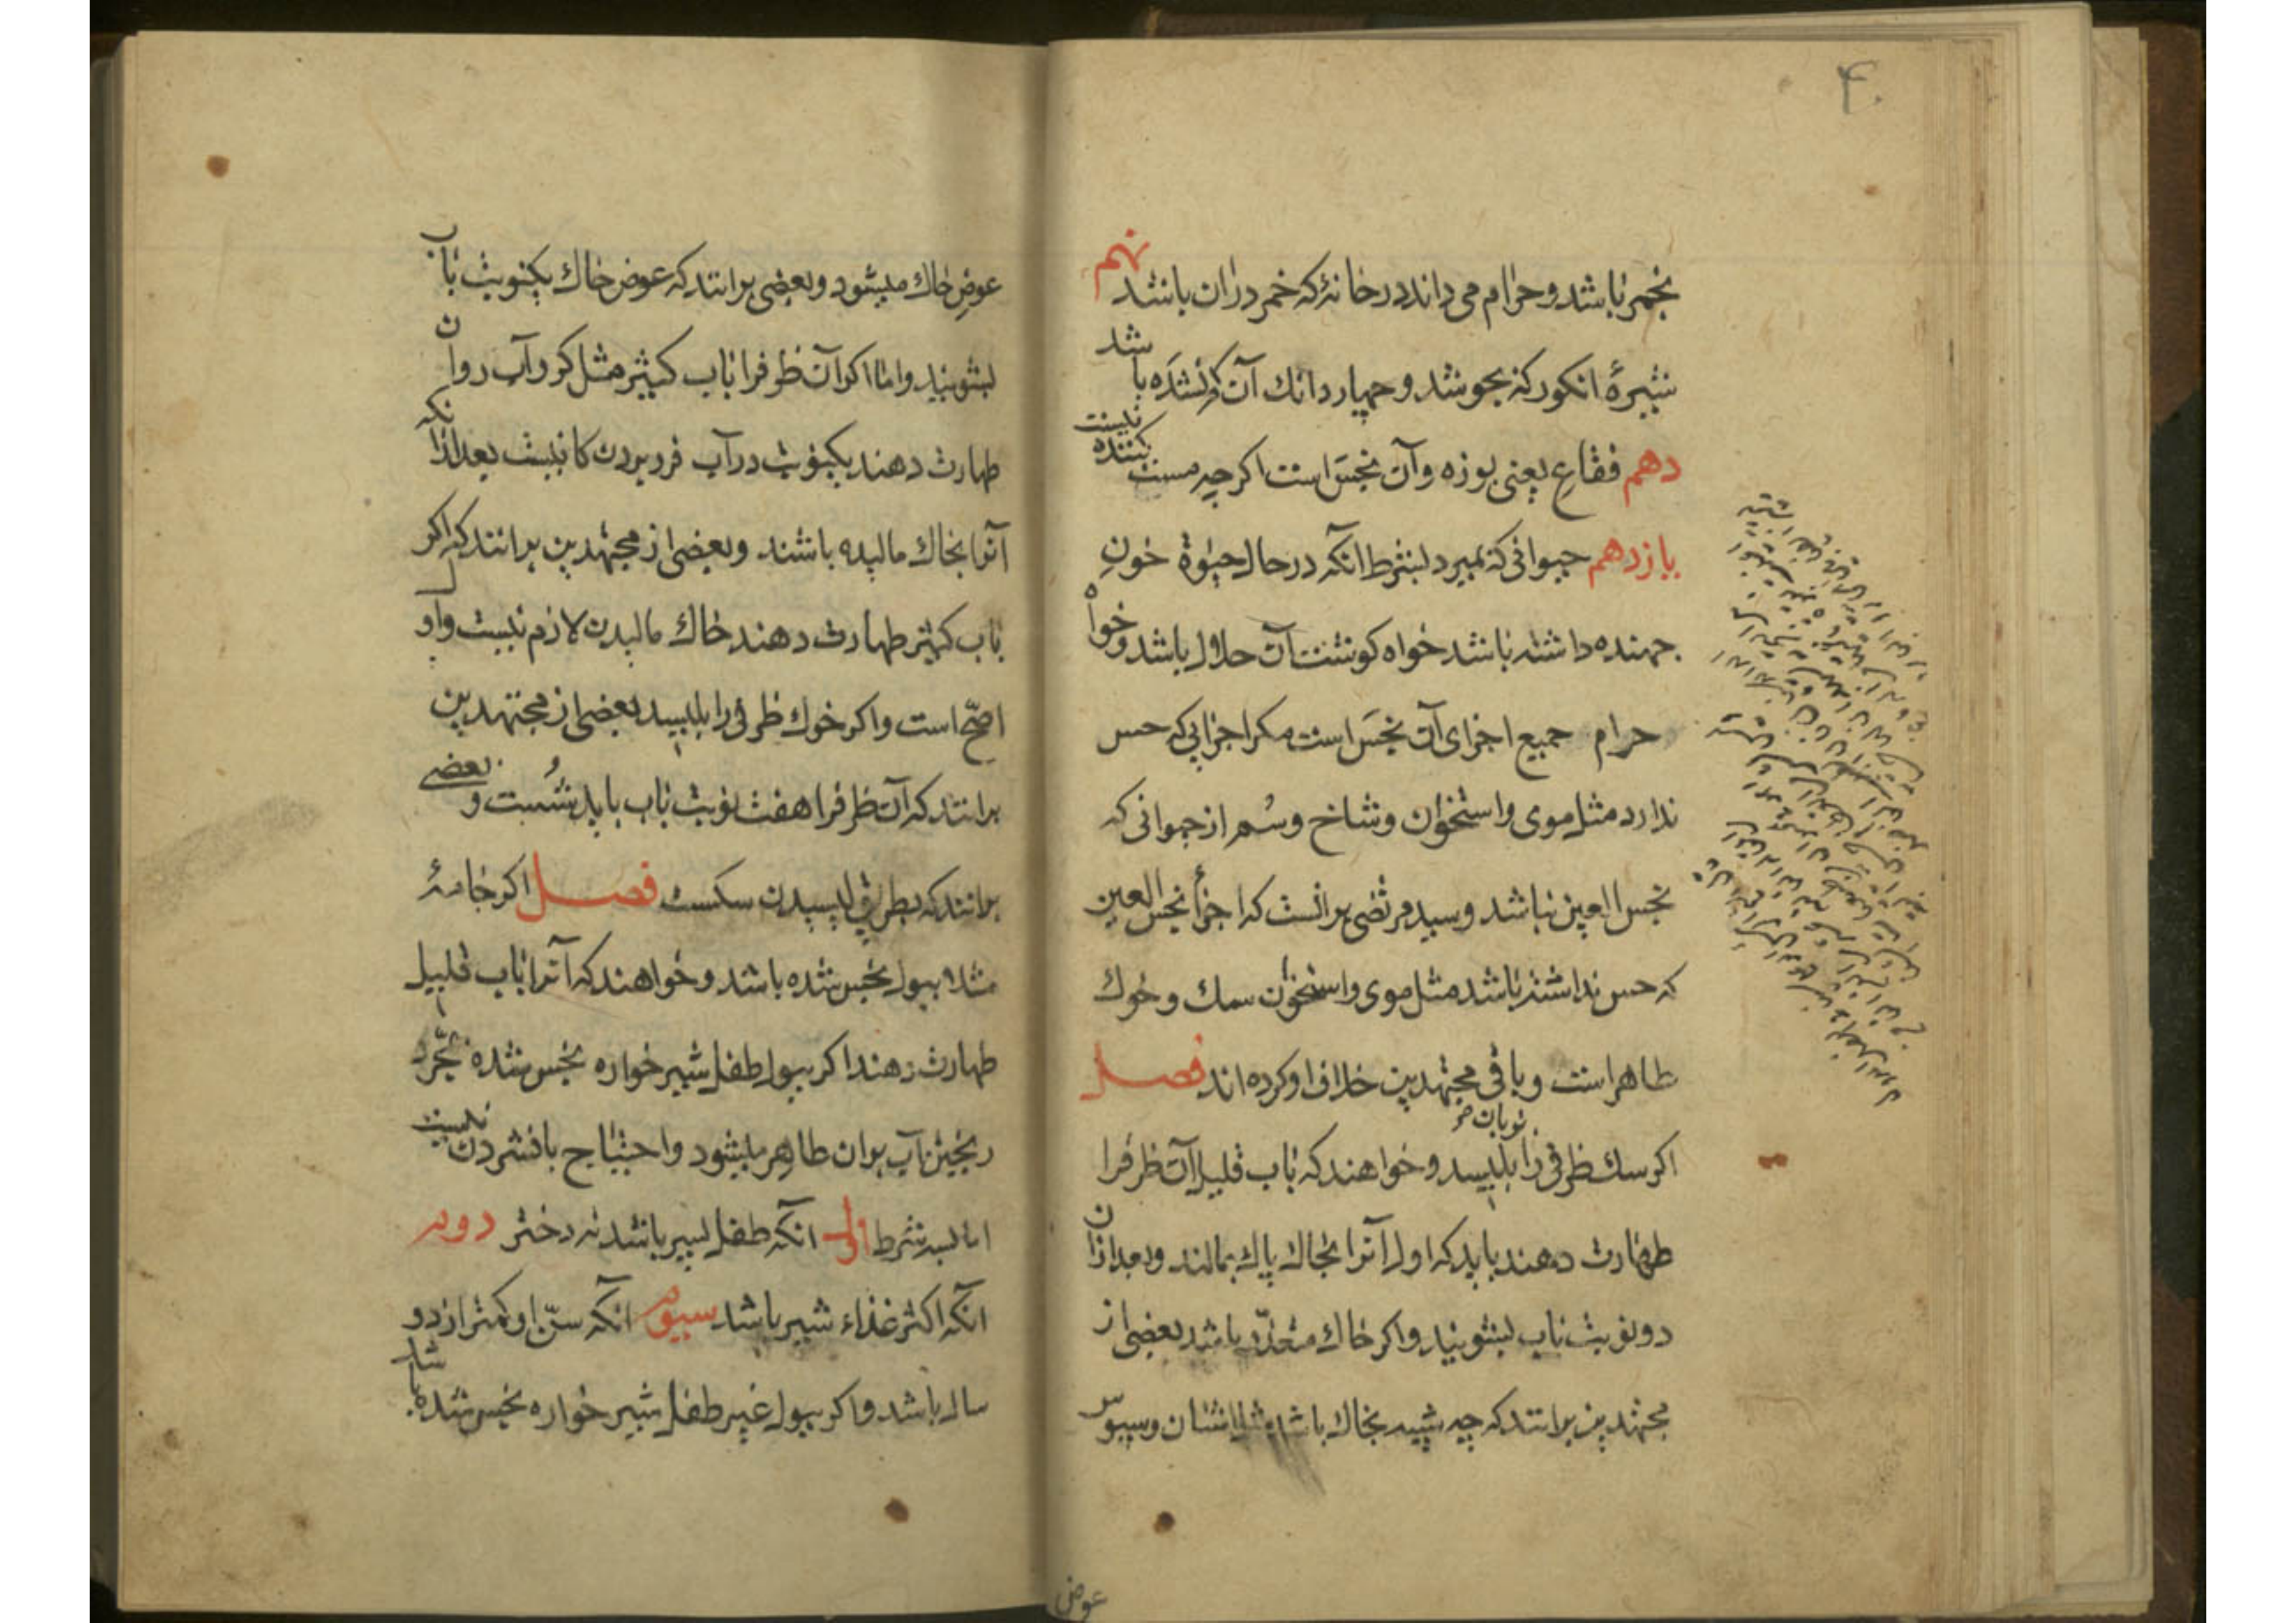 ۴۰
بخمر باشد و حرام می داند در خانهٔ که خمر دران باشد نهم
شیرهٔ انکور که بجوشد و چهار دانك آن کم نشده باشد
دهم فقاع یعنی بوزه و آن نجس است اکرچه مست کننده نیست
یازدهم حیوانی که بمیرد بشرط انکه در حال حیوة خون
جهنده داشته باشد خواه کوشت آن حلال باشد و خواه
حرام جمیع اجزای آن نجس است مکر اجزایی که حس
ندارد مثل موی و استخوان و شاخ و سُم از حیوانی که
نجس العین نباشد و سید مرتضی برانست که اجزأ نجس العین
که حس نداشته باشد مثل موی و استخوان سك و خوك
طاهر است و باقی مجتهدین خلاف او کرده اند فصل
اکر سك ظرفی را بزبان بلیسد و خواهند که بآب قلیل آن ظرف را
طهارت دهند باید که اول آنرا بخاك پاك بمالند و بعد ازان
دو نوبت بآب بشویند و اکر خاك متعذر باشد بعضی از
مجتهدین برانند که چه شبیه بخاك باشد مثل اشنان و سبوس
عوض
عوض خاك میشود و بعضی برانند که عوض خاك یکنوبت بآب
بشویند و اما اکر آن ظرف را بآب کثیر مثل کر و آب روان
طهارت دهند یکنوبت در آب فرو بردن کافیست بعد ازانکه
آنرا بخاك مالیده باشند و بعضی از مجتهدین برانند که اکر
بآب کثیر طهارت دهند خاك مالیدن لازم نیست و اول
اصحّ است و اکر خوك ظرفی را بلیسد بعضی از مجتهدین
برانند که آن ظرف را هفت نوبت بآب باید شُست و بعضی
برانند که بطریق لیسیدن سکست فصل اکر جامهٔ
مثلا ببول نجس شده باشد و خواهند که آنرا بآب قلیل
طهارت دهند اکر ببول طفل شیرخواره نجس شده بمجرّد
ریختن آب بران طاهر میشود و احتیاج بافشردن نیست
اما بسه شرط اول انکه طفل پسر باشد نه دختر دوم
آنکه اکثر غذاء شیر باشد سیوم انکه سنّ او کمتر از دو
سال باشد و اکر ببول غیر طفل شیرخواره نجس شده باشد